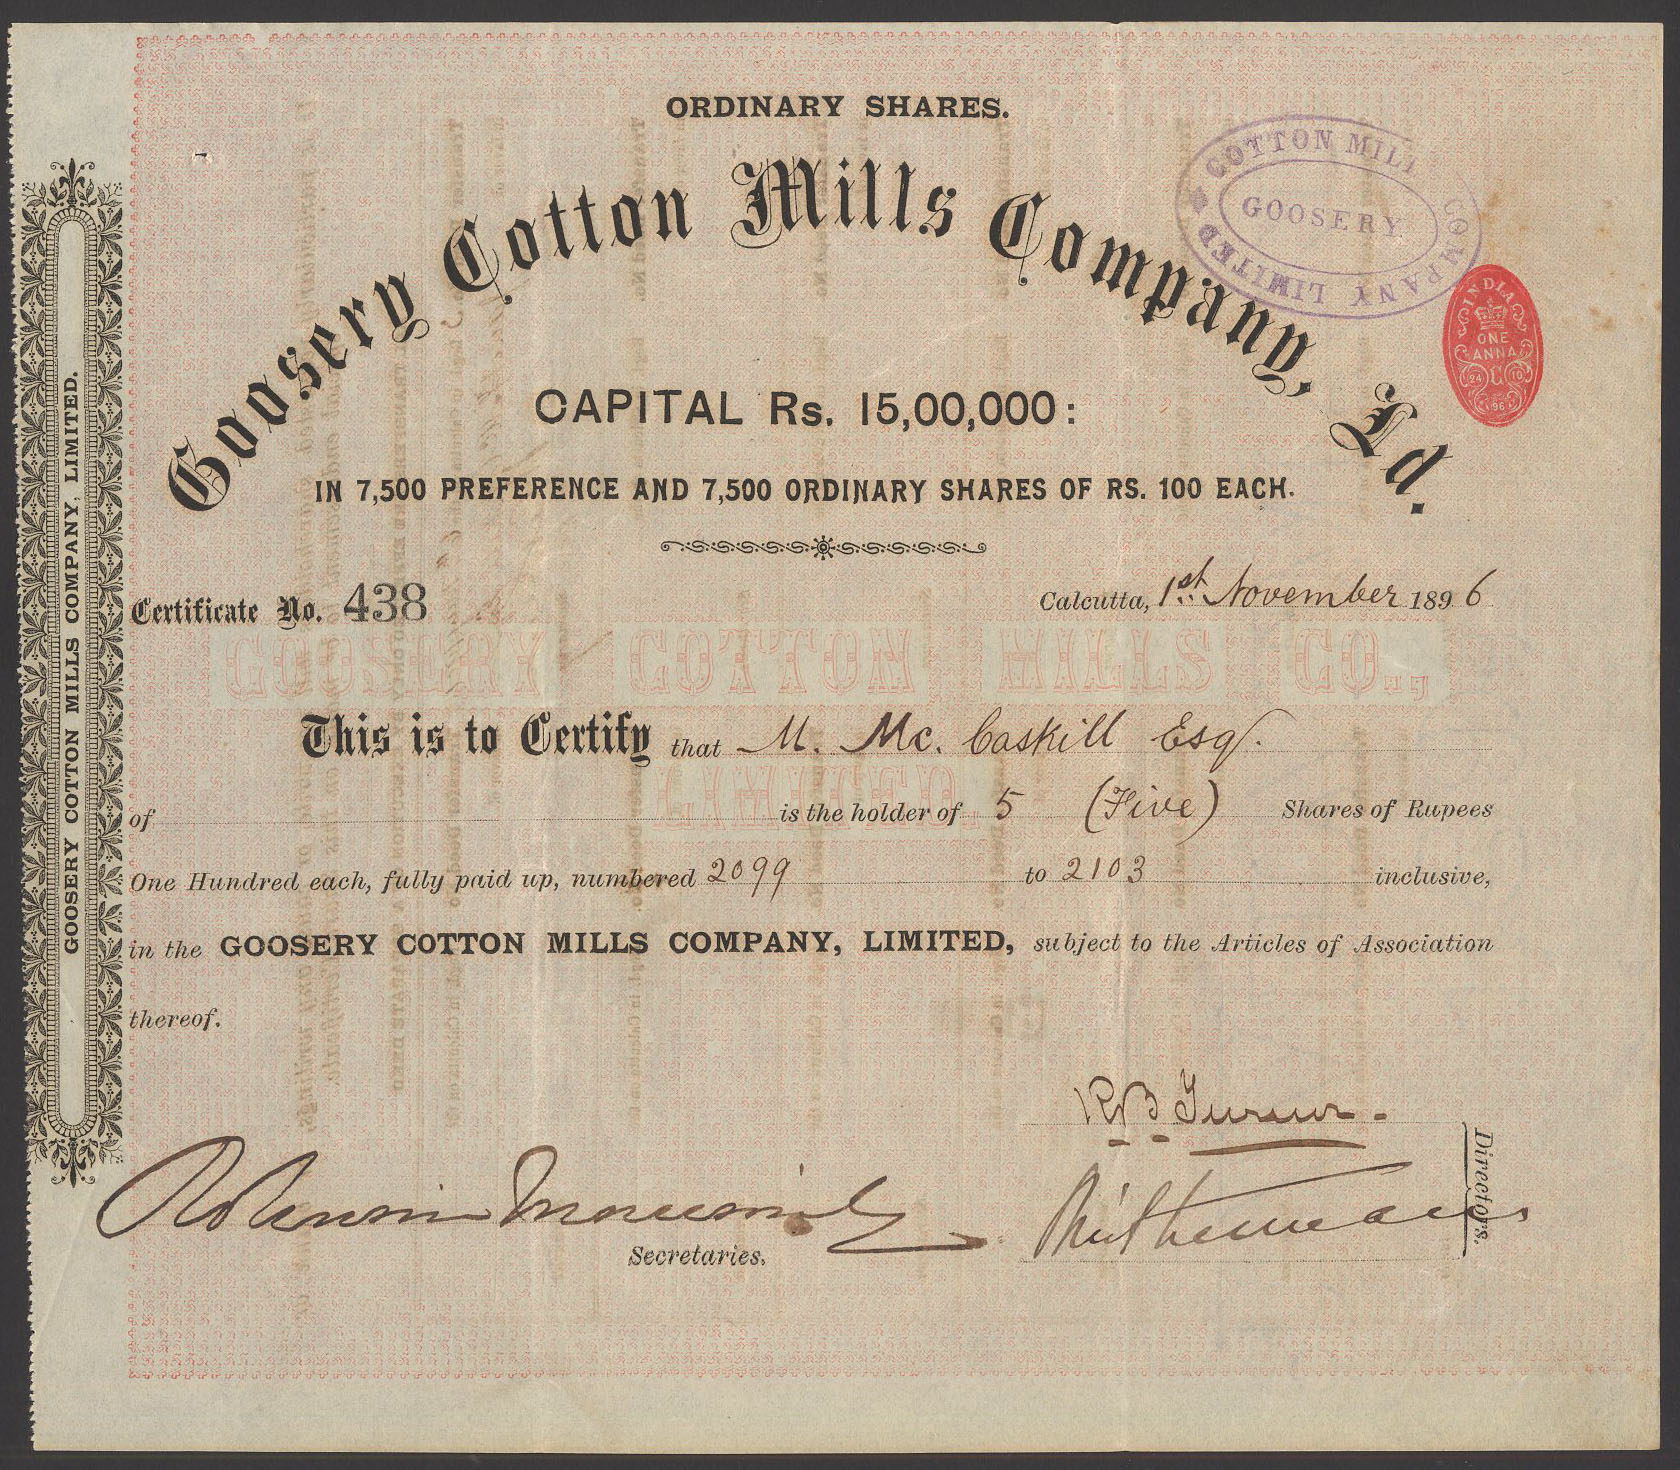 ORDINARY SHARES.
Goosery Cotton Mills Company, Ld.
COTTON MILL COMPANY LIMITED
GOOSERY
INDIA
ONE
ANNA
24 C 10
96
CAPITAL Rs. 15,00,000:
IN 7,500 PREFERENCE AND 7,500 ORDINARY SHARES OF RS. 100 EACH.
Certificate No. 438
Calcutta, 1st November 1896
GOOSERY COTTON MILLS CO.,
LIMITED
This is to Certify that M. Mc. Caskill Esq.
of is the holder of 5 (Five) Shares of Rupees
One Hundred each, fully paid up, numbered 2099 to 2103 inclusive,
in the GOOSERY COTTON MILLS COMPANY, LIMITED, subject to the Articles of Association
thereof.
Directors.
Secretaries.
GOOSERY COTTON MILLS COMPANY, LIMITED.